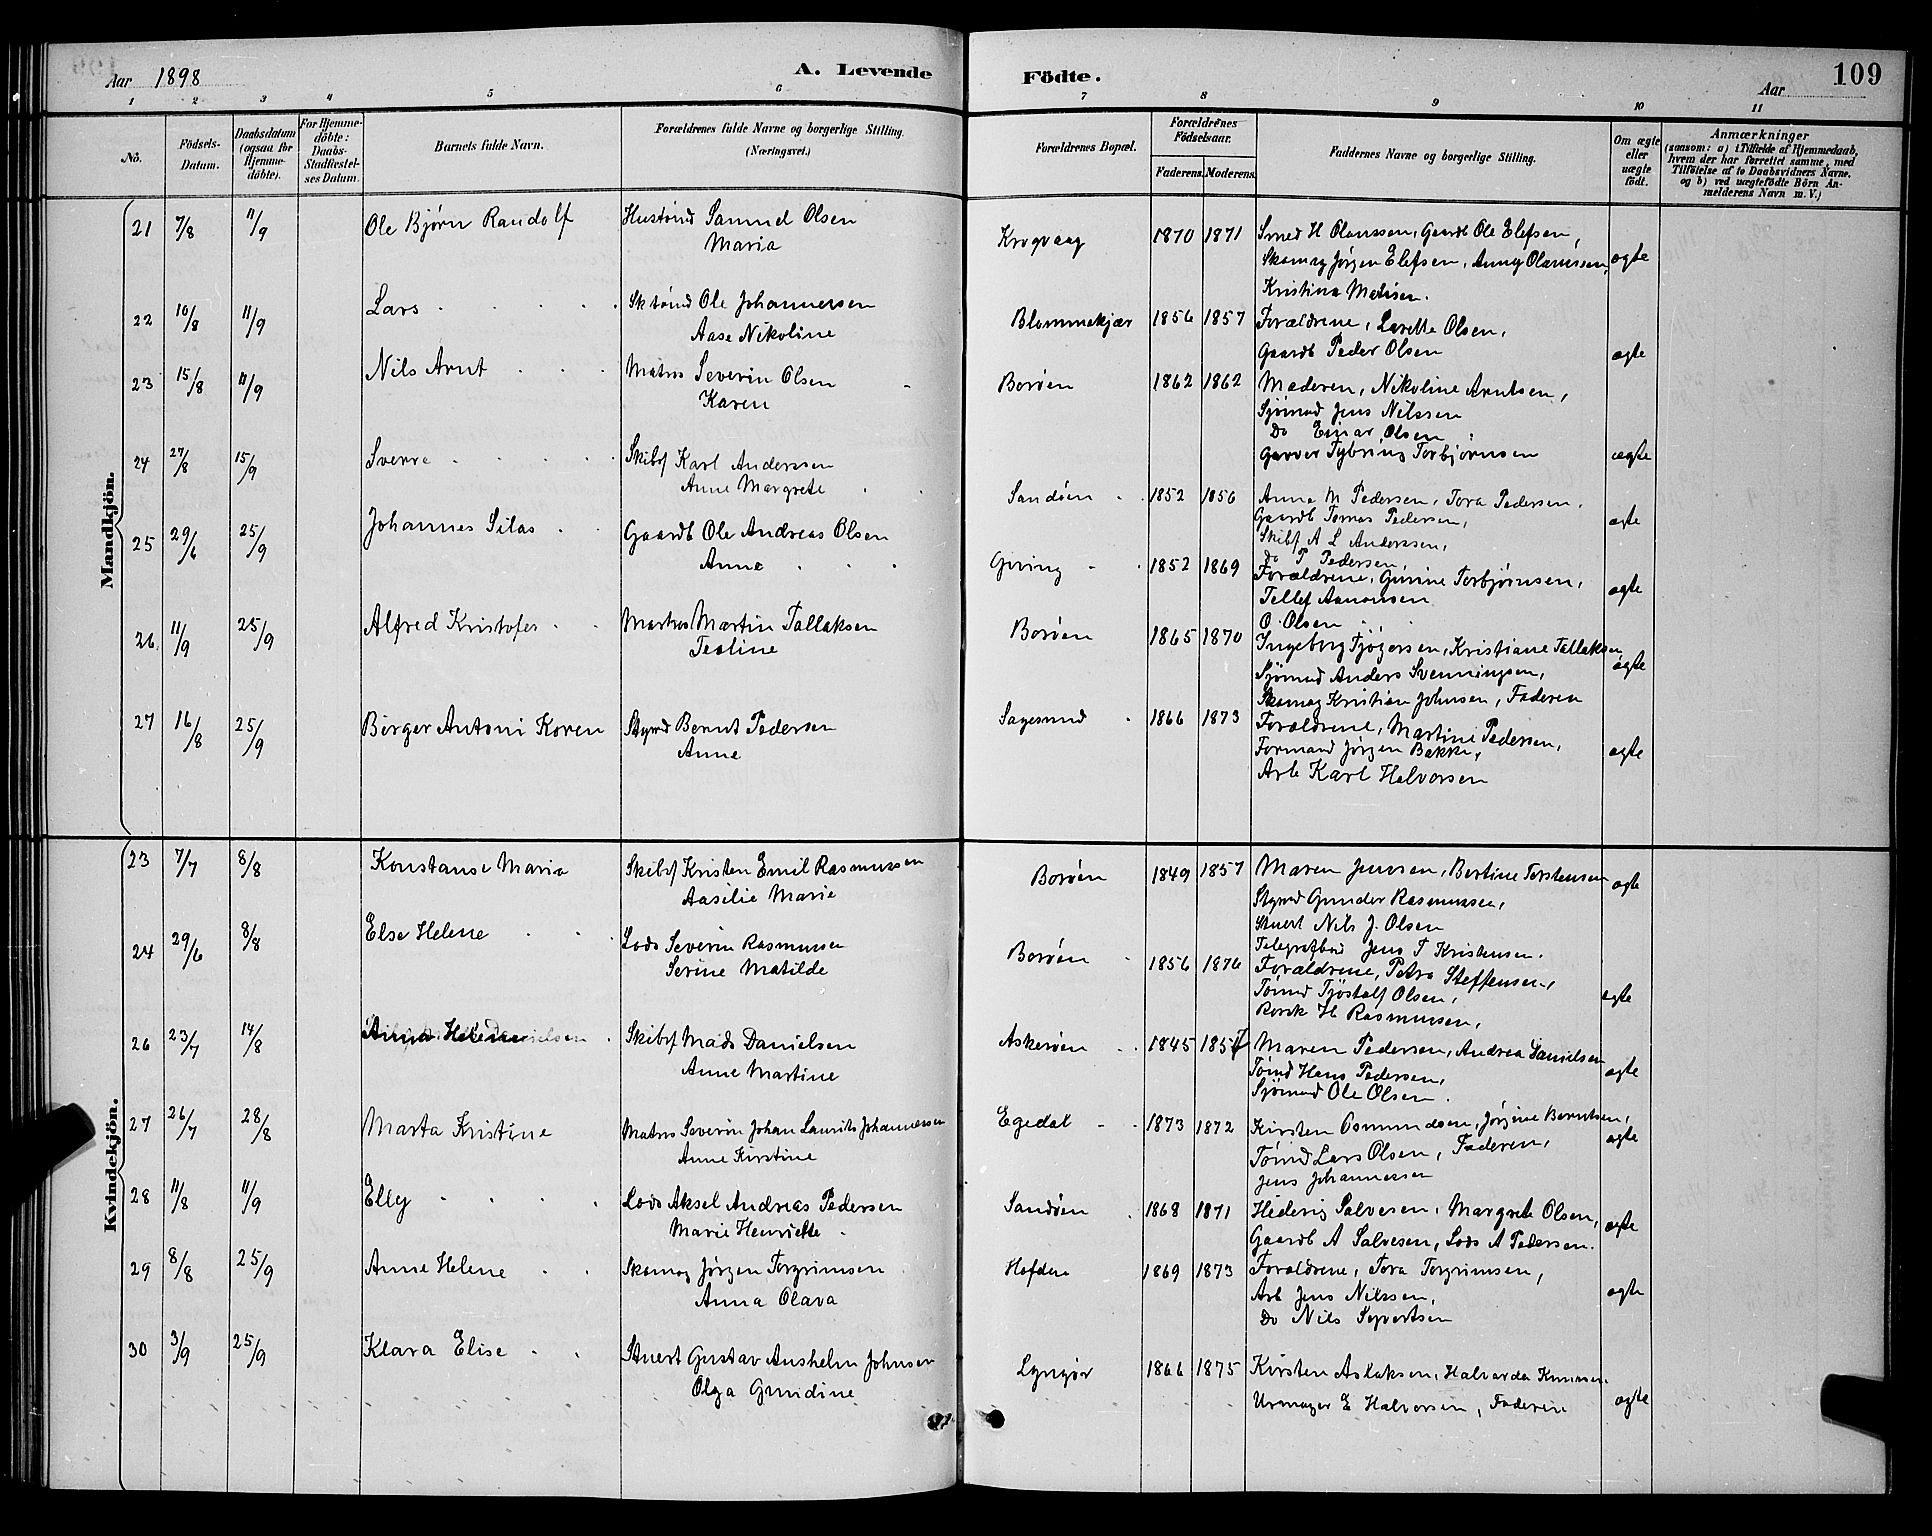 Aar 1898
A. Levende
Födte.
Aar
109
1 2 3 4 5 6 7 8 9 10 11
No.
Födsels-Datum.
Daabsdatum (ogsaa for Hjemme-döbte).
For Hjemme-döbte: Daabs-Stadfæstel-ses Datum.
Barnets fulde Navn.
Forældrenes fulde Navne og borgerlige Stilling. (Næringsvei.)
Forældrenes Bopæl.
Forældrenes Födselsaar.
Faderens. Moderens.
Faddernes Navne og borgerlige Stilling.
Om ægte eller uægte födt.
Anmærkninger
(saasom: a) i Tilfælde af Hjemmedaab,
hvem der har forrettet samme, med
Tilföielse af to Daabsvidners Navne.
og b) ved uægtefödte Börn An-
melderens Navn m. V.)
Mandkjön.
21 7/8 11/9 Ole Bjørn Randolf Hustømd Samuel Olsen Krogvaag 1870 1871 Smed H Olaussen, Gaardb Ole Elefsen,
Maria Skomag Jørgen Elefsen, Anny Olaussen, ægte
Kristina Madsen.
22 10/8 11/9 Lars Sktømd Ole Johannessen Blommekjær 1856 1857 Forældrene, Lovette Olsen,
Aase Nikoline Gaardb Peder Olsen ægte
23 15/8 11/9 Nils Arnt Matros Severin Olsen Borøen 1862 1862 Moderen, Nikoline Arntsen,
Karen Sjømand Jens Nilssen
Do Einar Olsen
24 27/8 15/9 Sverre Skibsf Karl Anderssen Garver Tybring Torbjørnsen ægte
Anne Margrete Sandøen 1852 1856 Anna M Pedersen, Tora Pedersen,
25 29/6 25/9 Johannes Silas Gaardb Ole Andreas Olsen Gaardb Tomas Pedersen, ægte
Anne Skibsf A L Anderssen,
Do P Pedersen,
Giving 1852 1869 Forældrene, Gurine Torbjørnsen,
Tellef Aanonsen ægte
O. Olsen
26 11/9 25/9 Alfred Kristofer Matros Martin Tallaksen Borøen 1865 1870 Ingeborg Tjøgersen, Kristiane Tallaksen,
Tealine Sjømand Anders Svenningsen, ægte
Skomag Kristian Johnsen, Faderen
27 16/8 25/9 Børger Antoni Koren Styrmd Bernt Pedersen Sagesund 1866 1873 Forældrene, Martine Pedersen,
Anne Formand Jørgen Bakke, ægte
Arb Karl Halvorsen
Kvindekjön.
23 7/7 8/8 Konstanse Marie Skibsf Kristen Emil Rasmussen Borøen 1849 1857 Maren Jenssen, Bertine Torstensen ægte
Aasilie Marie Styrmd Gunder Rasmussen,
Stuert Nils J. Olsen
24 29/6 8/8 Else Helene Lods Severin Rasmussen Borøen Telegrafbud Jens T Kristensen.
Serine Matilde 1856 1876 Forældrene, Petra Steffensen,
Tømd Tjøstolf Olsen, ægte
H Rasmussen,
26 23/7 14/8 Skibsf Mads Danielsen Askerøen 1845 Maren Pedersen, Andrea Danielsen
Anne Martine Tømd Hans Pedersen, ægte
Sjømand Ole Olsen.
27 26/7 28/8 Marta Kristine Matros Severin Johan Laurits Johannessen Egedal 1873 1872 Kirsten Osmundsen, Jørgine Berntsen,
Anne Kirstine Tømd Lars Olsen, Faderen, ægte
Jens Johannessen
28 11/8 11/9 Elly Lods Aksel Andreas Pedersen Sandøen 1868 1871 Hedevig Salvesen, Margrete Olsen,
Marie Henriette Gaardb A Salvesen, Lods A Pedersen. ægte
29 8/8 25/9 Anne Helene Skomag Jørgen Torgrimsen Hofden 1869 1873 Forældrene, Tora Torgrimsen,
Anna Olava Arb Jens Nilssen, ægte
Do Nils Syvertsen
30 3/9 25/9 Klara Elise Stuert Gustav Anshelm Johnsen Lyngør 1866 1875 Kirsten Aslaksen, Halvarda Knudsen.
Olga Gundine Urmager E Halvorsen, Faderen ægte